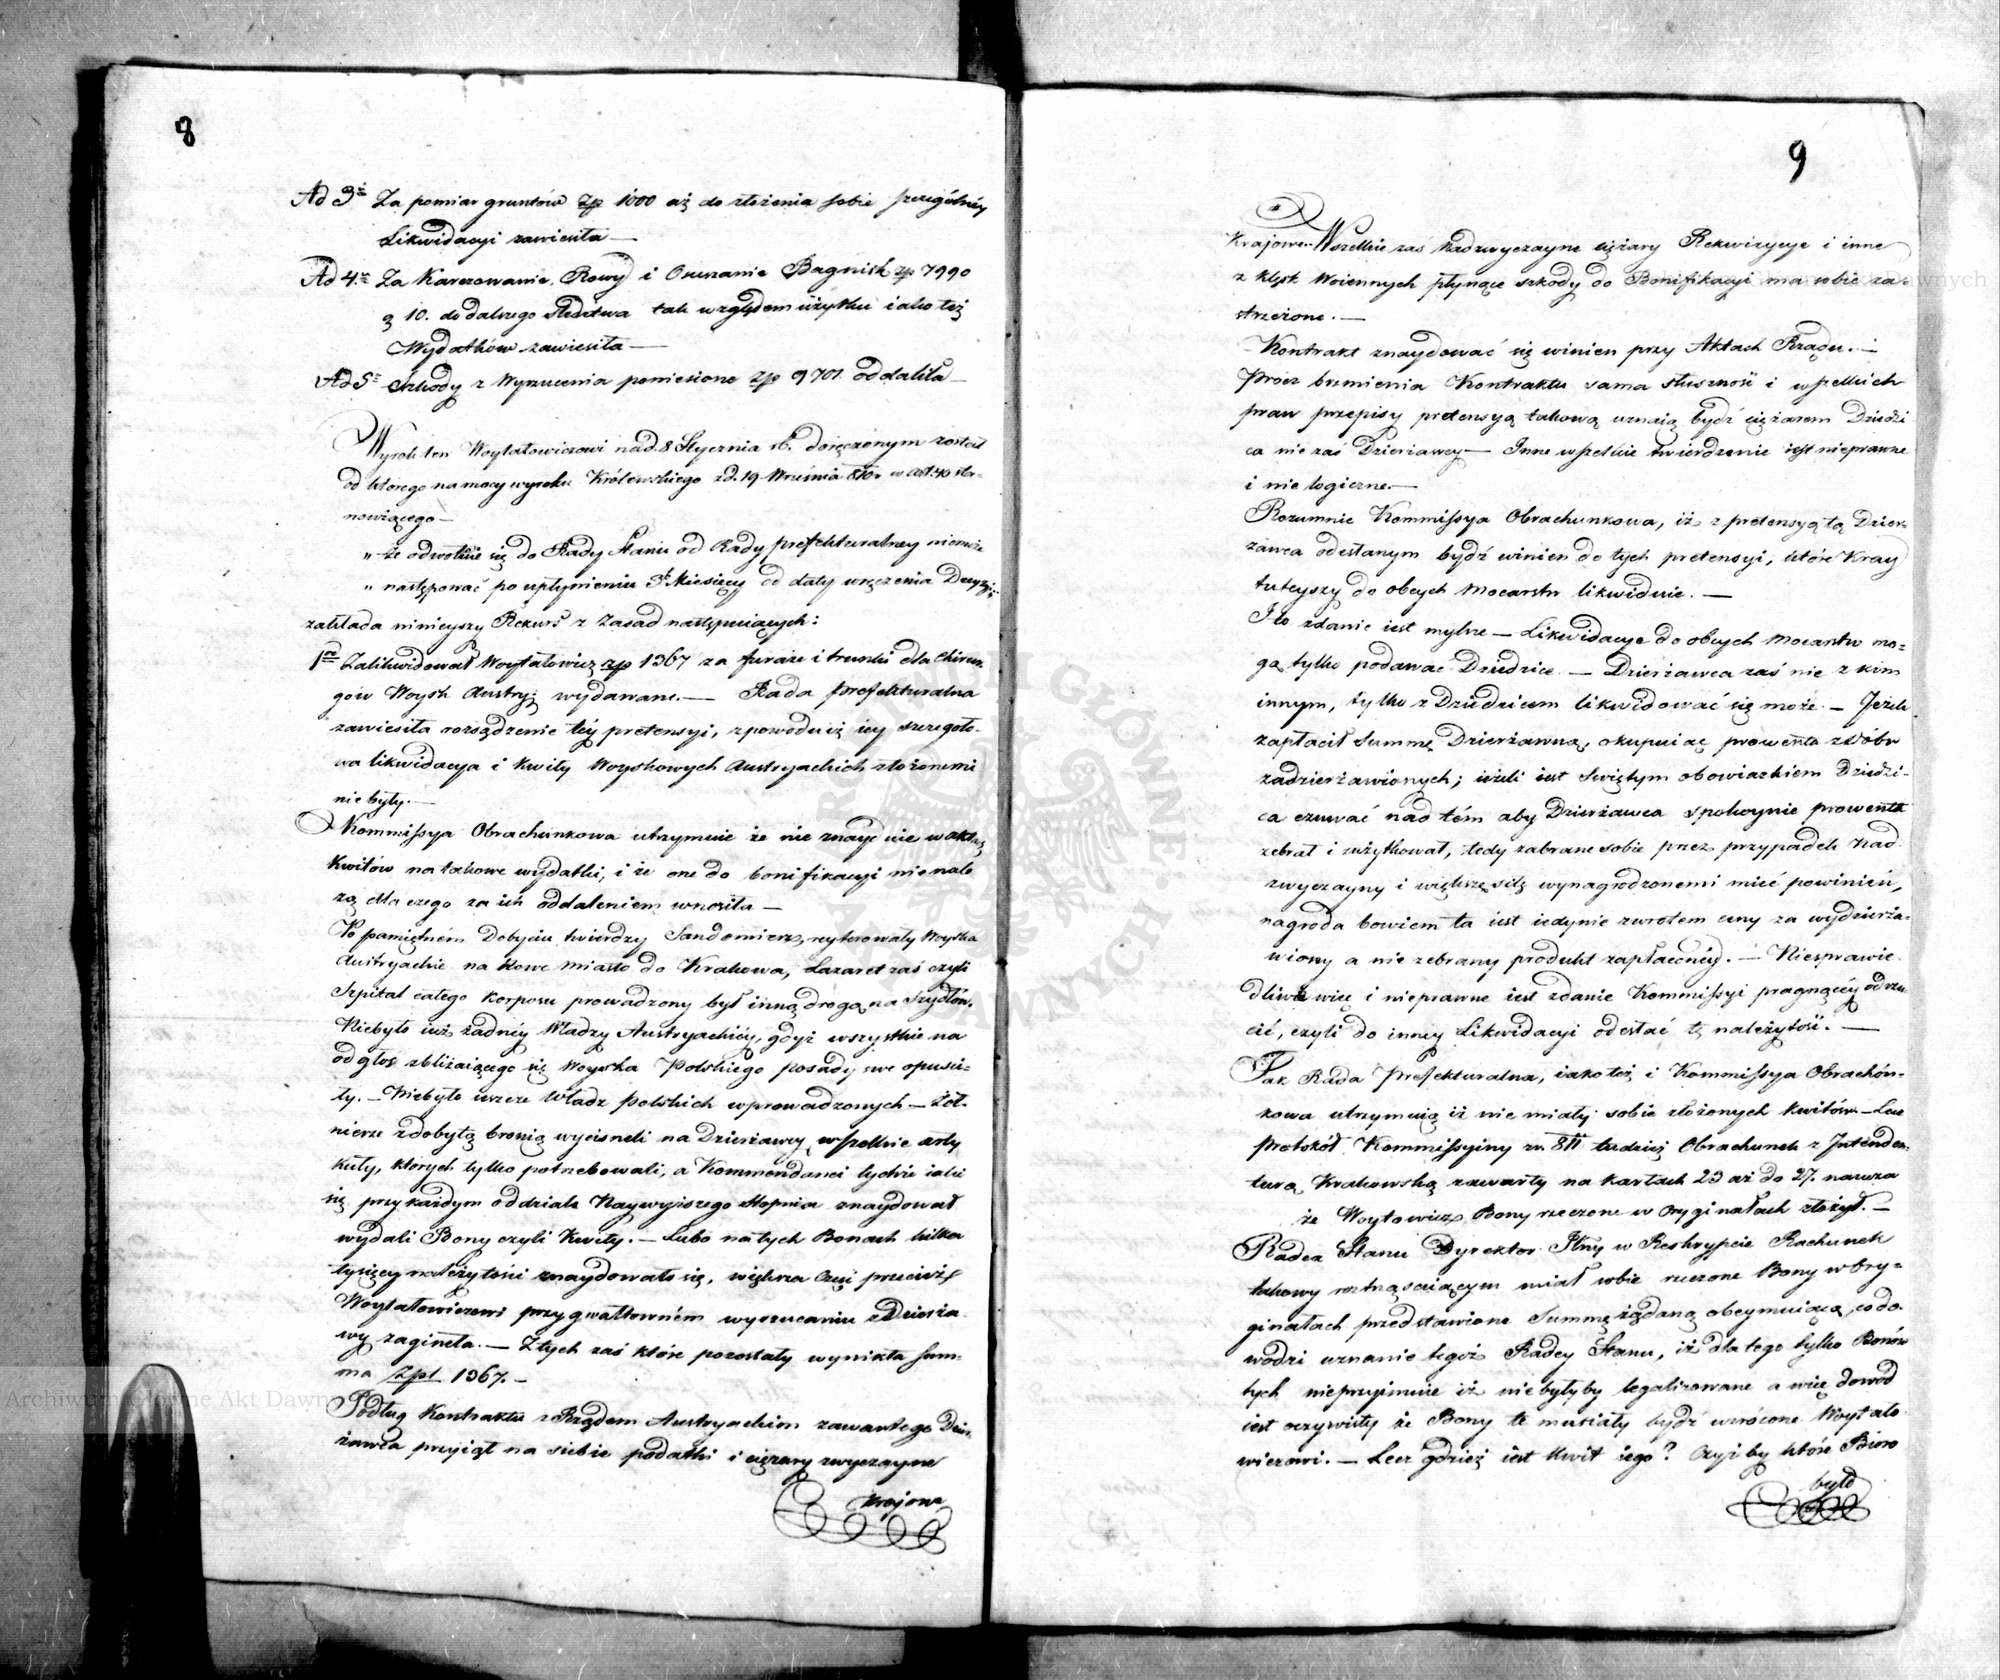 8
Ad 3: Za pomiar gruntów Zp 1000 aż do złożenia sobie szczególnéy
Likwidacyi zawiesiła —
Ad 4: Za Karczowanie, Rowy i Osuszanie Bagnisk zp 7990
g 10. do dalszego śledztwa tak względem użytku iako też
Wydatków zawiesiła —
Ad 5: Szkody z Wyrzucenia poniesione zp 9701. oddaliła —
Wyrok ten Woytatowiczowi nad. 8 Stycznia rb. doręczonym został
od którego na mocy wyroku Królewskiego zd. 19 Września 810. w art: 40 sta-
nowiącego —
„ że odwołanie się do Rady Stanu od Rady prefekturalney niemoże
„ następować po upłynieniu 3ch Miesięcy od daty wręczenia Decyzyi;
zakłada ninieyszy Rekurs z Zasad następuiących:
1mo Zalikwidował Woytatowicz zp 1367 za furaże i trunki dla Chirur-
gów Woysk Austry: wydawane. — Rada prefekturalna
zawiesiła rozsądzenie téy pretensyi, zpowodu iż iey szczegóło-
wa likwidacya i kwity Woyskowych Austryackich złożonemi
nie były. —
Kommissya Obrachunkowa utrzymuie że nie znayduie w aktach
Kwitów na takowe wydatki, i że one do bonifikacyi nie nale
żą dla czego za ich oddaleniem wnosiła —
Po pamiętném Dobyciu twierdzy Sandomierz, reyterowały Woyska
Austryackie na Nowe miasto do Krakowa, Lazaret zaś czyli
Szpital całego Korpusu prowadzony był inną drogą na Szydłów.
Niebyło iuż żadnéy Władzy Austryackiéy, gdyż wszystkie na
odgłos zbliżaiącego się Woyska Polskiego posady swe opuści-
ły. — Niebyło ieszcze Władz Polskich wprowadzonych — Żoł-
nierze zdobytą bronią wycisneli na Dzierżawcy wszelkie arty
kuły, których tylko potrzebowali, a Kommendanci tychże iaki
się przy każdym oddziale Naywyższego stopnia znaydował
wydali Bony czyli Kwity. — Lubo na tych Bonach kilka
tysięcy należytości znaydowało się, większa Część przecież
Woytatowiczowi przy gwałtowném wyrzucaniu z Dzierża
wy zagineła. — Z tych zaś które pozostały wynikła sum-
ma Zpl 1367. —
Podług Kontraktu z Rządem Austryackim zawartego Dzier-
żawca przyiął na siebie podatki i ciężary zwyczayne
Krajowe
9
Krajowe. — Wszelkie zaś Nadzwyczayne ciężary Rekwizycye i inne
z klęsk Woiennych płynące szkody do Bonifikacyi ma sobie za-
strzeżone. —
Kontrakt znaydować się winien przy Aktach Rządu. —
Prócz brzmienia Kontraktu sama słuszność i wszelkich
praw przepisy pretensyą takową uznaią bydź ciężarem Dziedzi
ca nie zaś Dzierżawcy — Inne wszelkie twierdzenie iest nieprawne
i nie logiczne. —
Rozumnie Kommissya Obrachunkowa, iż z pretensyą tą Dzier-
żawca odesłanym bydź winien do tych pretensyi, które Kray
tuteyszy do obcych Mocarstw likwiduie. —
I to zdanie iest mylne — Likwidacye do obcych Mocarstw mo-
gą tylko podawać Dziedzice. — Dzierżawca zaś nie z kim
innym, tylko z Dziedzicem likwidować się może. — Jeżeli
zapłacił Summę Dzierżawną, okupuiąc prowenta z Dóbr
zadzierżawionych; ieżeli iest Świętym obowiązkiem Dziedzi-
ca czuwać nad tém aby Dzierżawca spokoynie prowenta
zebrał i zużytkował, tedy zabrane sobie przez przypadek Nad
zwyczayny i większą siłę wynagrodzonemi mieć powinien,
nagroda bowiem ta iest iedynie zwrotem ceny za wydzierża-
wiony a nie zebrany produkt zapłaconéy. — Niesprawie
dliwe więc i nieprawne iest zdanie Kommissyi pragnącéy odrzu
cić, czyli do inney Likwidacyi odesłać tę należytość. —
Tak Rada Prefekturalna, iako też i Kommissya Obrachón-
kowa utrzymuią iż nie miały sobie złożonych Kwitów — Lecz
Protokół Kommissyiny zr. 811 tudzież Obrachunek z Intenden-
turą Krakowską zawarty na kartach 23 aż do 27. naucza
że Woytowicz Bony rzeczone w Oryginałach złożył. —
Radca Stanu Dyrektor Jlny w Reskrypcie Rachunek
takowy roztrząsaiącym miał sobie rzeczone Bony w Ory-
ginałach przedstawione Summę żądaną obeymuiącą, co do-
wodzi uznanie tegoż Radcy Stanu, iż dla tego tylko Bonów
tych nieprzyimuie iż nie byłyby legalizowane a więc dowód
iest oczywisty że Bony te musiały bydź wrócone Woytato
wiczowi. — Lecz gdzież iest Kwit iego? Czyi by które Bióro
było